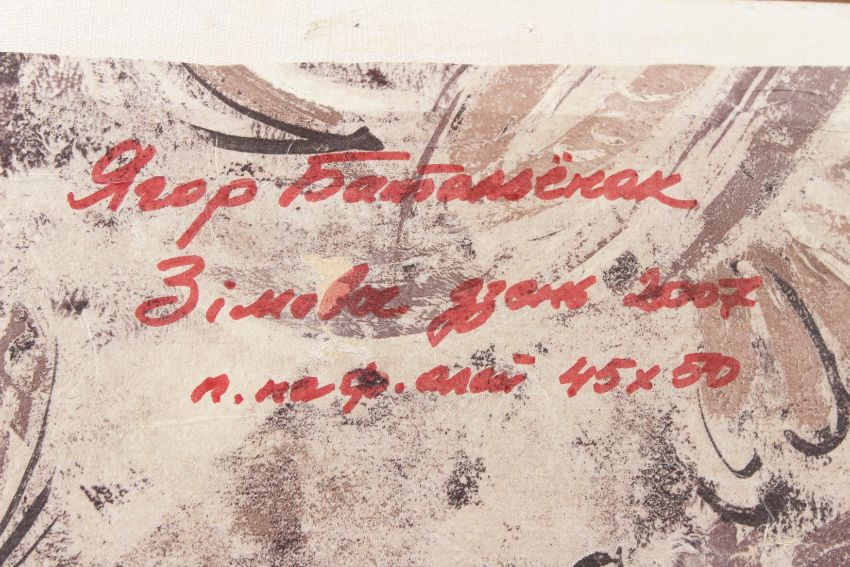 Ягор Батальёнак
Зімовы дзень 2007
п. на ф. алей 45х50